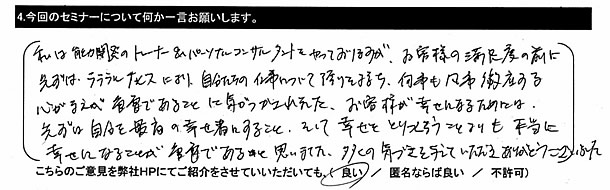 4.今回のセミナーについて何か一言お願いします。
私は能力開発のトレーナー&パーソナルコンサルタントをやっておりますが、お客様の満足度の前に
先ずは、 自分たちの仕事について誇りをもち、何事も凡事徹底する
心がまえが重要であることに気づかされました。お客様が幸せになるためには、
先ずは自分を最高の幸せ者にすること、そして幸せをとりつくろうことよりも本当に
幸せになることが重要であるかと思いました。多くの気づきを いただき ありがとうございました
こちらのご意見を弊社HPにてご紹介をさせていただいても、(良い / 匿名ならば良い / 不許可)